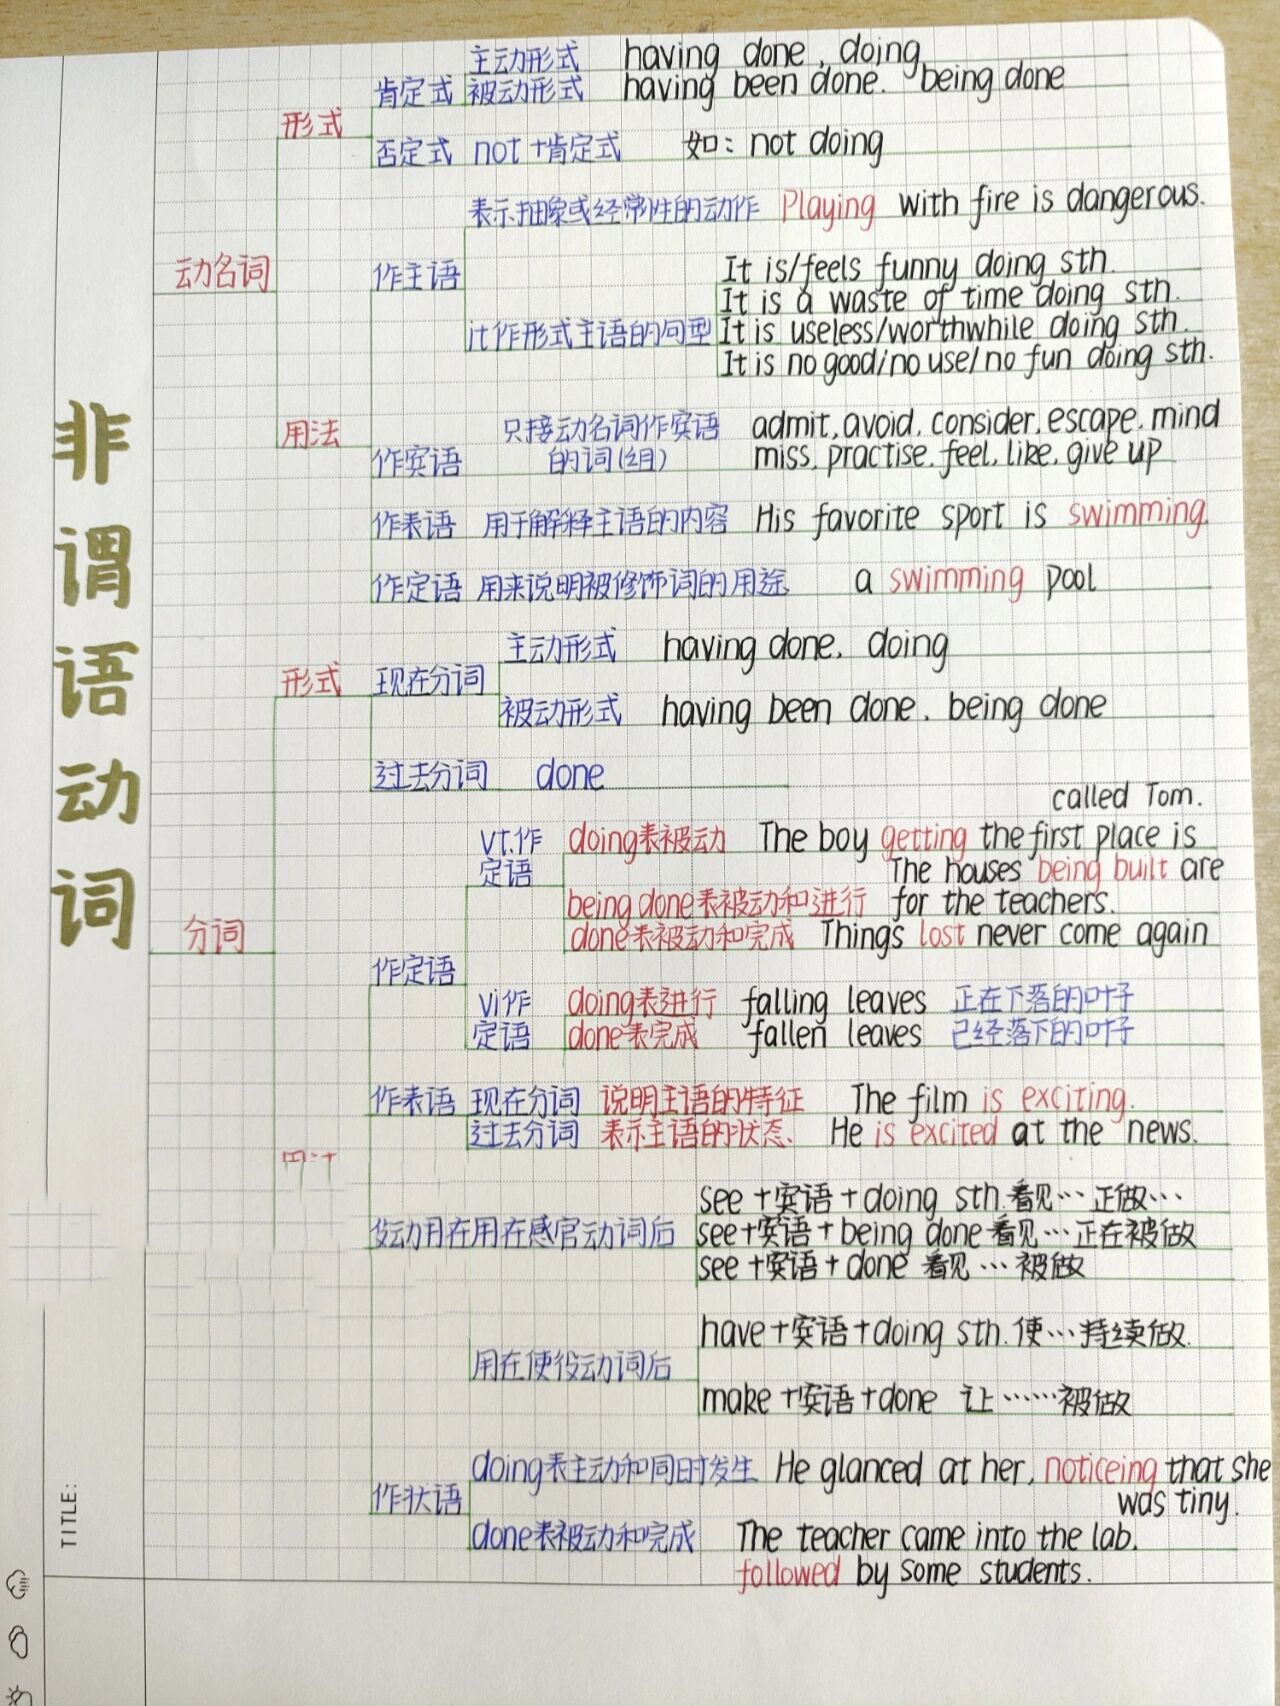 主动形式 having done, doing
肯定式 被动形式 having been done. being done
形式
否定式 not+肯定式 如: not doing
表示抽象或经常性的动作 Playing with fire is dangerous.
动名词
作主语
It is/feels funny doing sth.
It is a waste of time doing sth.
it作形式主语的句型 It is useless/worthwhile doing sth.
It is no good/no use/no fun doing sth.
用法
只接动名词作宾语 admit, avoid, consider, escape, mind
作宾语 的词(组) miss, practise, feel, like, give up
作表语 用于解释主语的内容 His favorite sport is swimming
作定语 用来说明被修饰词的用途. a swimming pool
非谓语动词
主动形式 having done. doing
形式 现在分词
被动形式 having been done. being done
过去分词 done
called Tom.
vt.作 doing表被动 The boy getting the first place is
定语 The houses being built are
being done表被动和进行 for the teachers.
分词
done表被动和完成 Things lost never come again
作定语
vi作 doing表进行 falling leaves 正在下落的叶子
定语 done表完成 fallen leaves 已经落下的叶子
作表语 现在分词 说明主语的特征 The film is exciting.
过去分词 表示主语的状态. He is excited at the news.
see+宾语+doing sth.看见…正做…
用在感官动词后 see+宾语+being done看见…正在被做
see+宾语+done 看见…被做
have+宾语+doing sth.使…持续做.
用在使役动词后
make+宾语+done 让……被做
doing表主动和同时发生 He glanced at her, noticeing that she
was tiny.
作状语
done表被动和完成 The teacher came into the lab.
followed by some students.
TITLE: